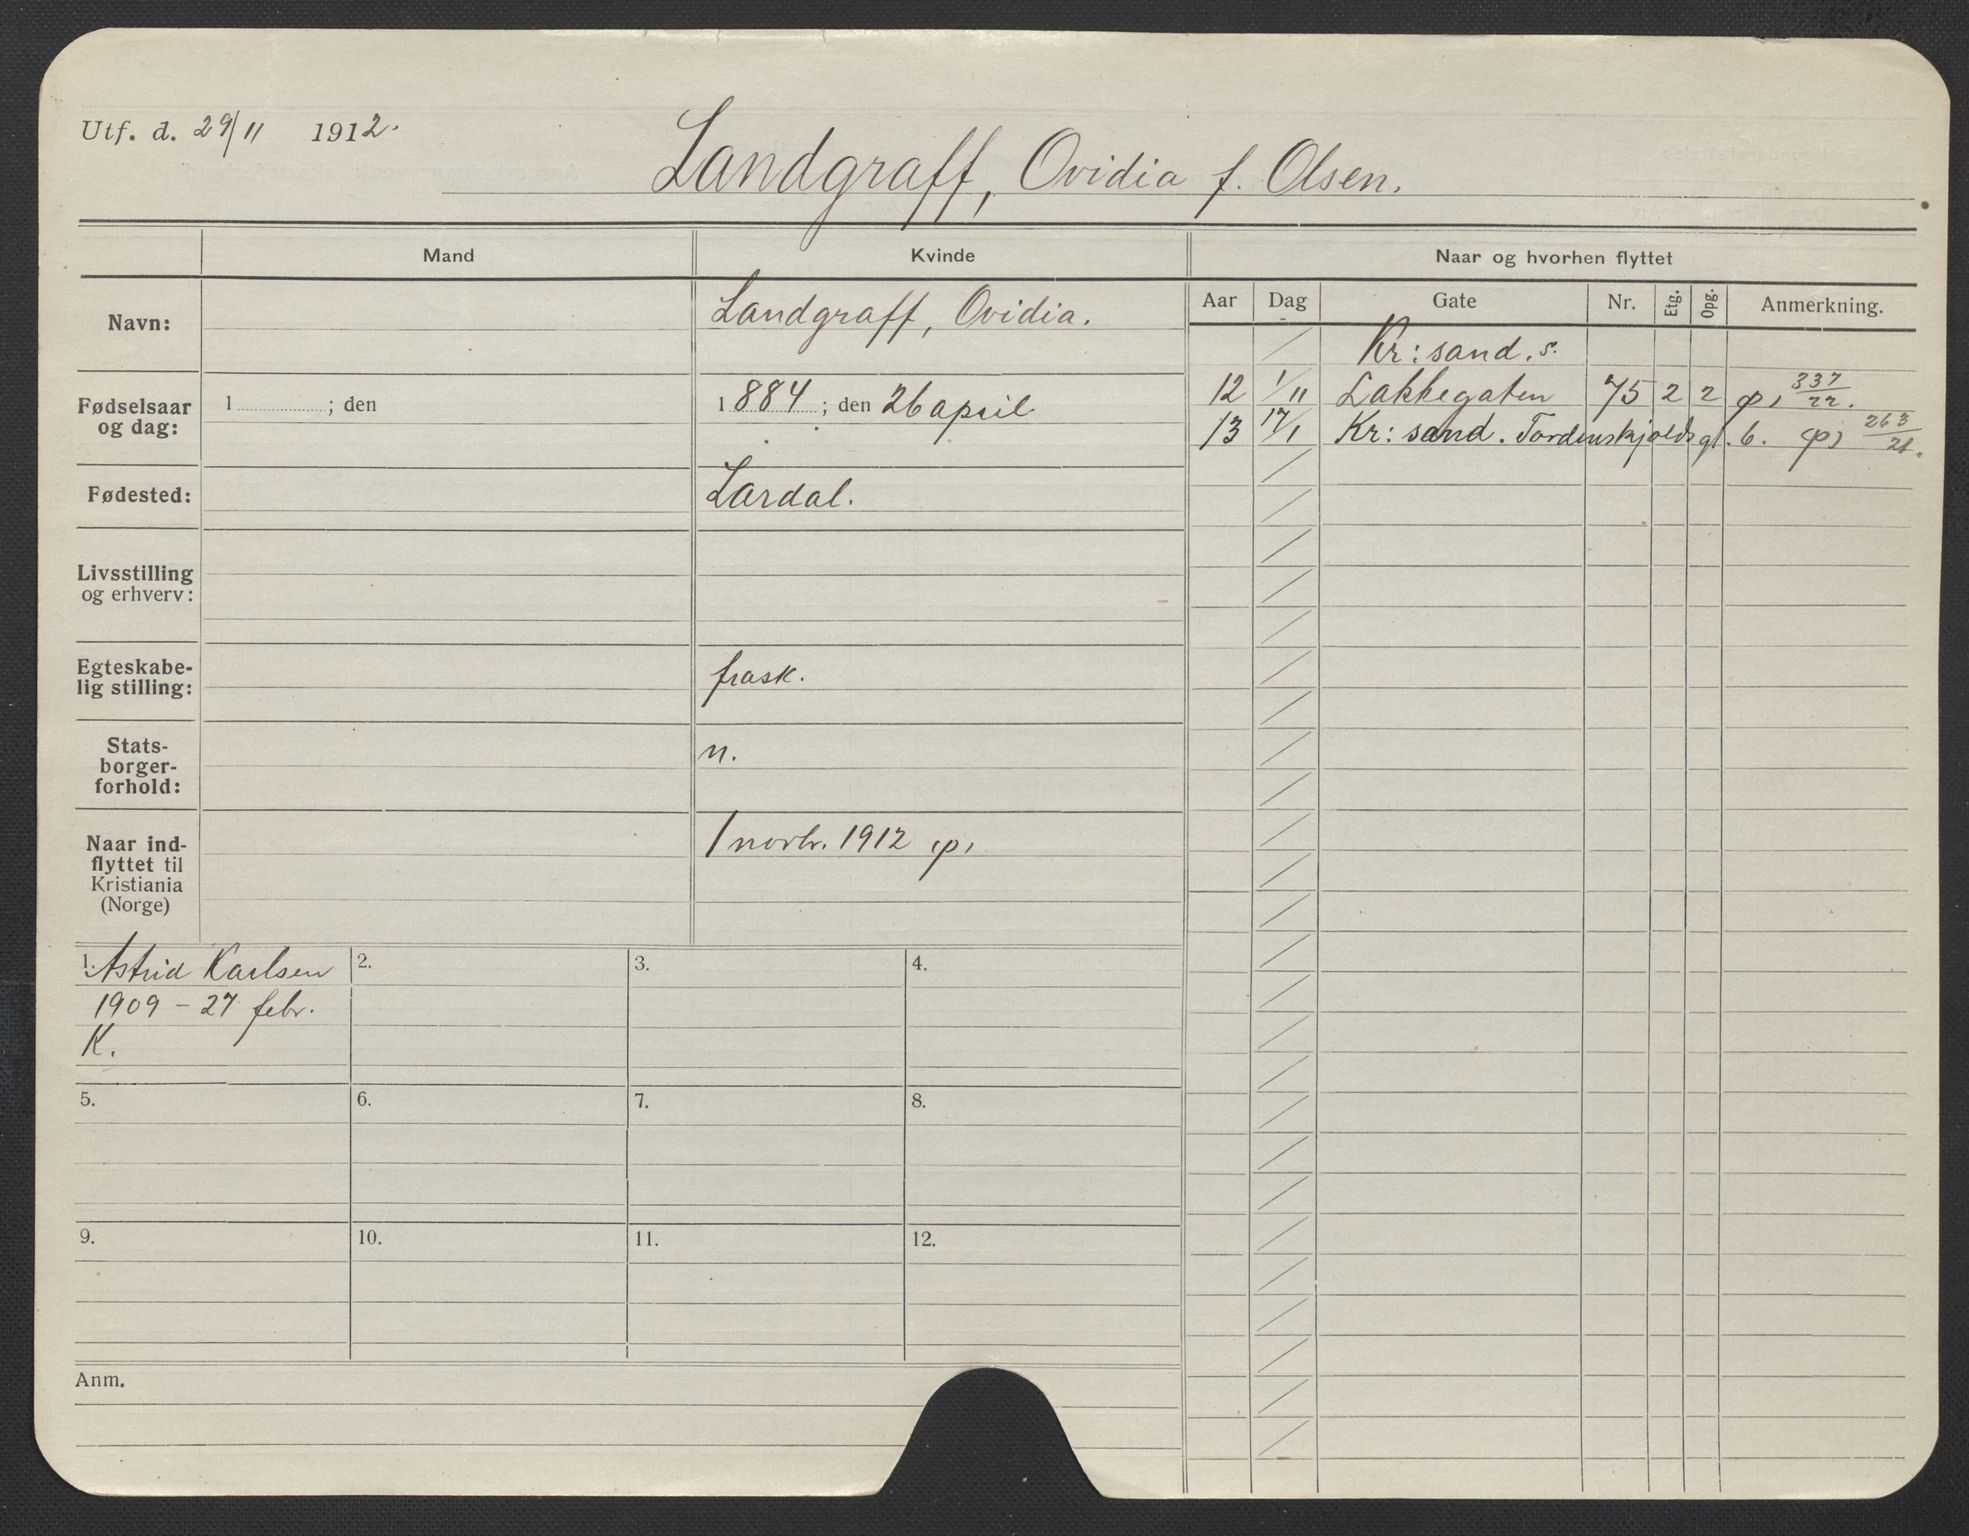 Utf. d. 29/11 1912.
Landgraff, Ovidia f. Olsen.
Mand
Kvinde
Naar og hvorhen flyttet
Navn:
Landgraff, Ovidia.
Fødselsaar
og dag:
1 ; den
1884 ; den 26 april
Fødested:
Lardal.
Livsstilling
og erhverv:
Egteskabe-
lig stilling:
frask.
Stats-
borger-
forhold:
n.
Naar ind-
flyttet til
Kristiania
(Norge)
1 novbr. 1912
1. Astrid Karlsen
1909 - 27 febr.
K.
2.
3.
4.
5.
6.
7.
8.
9.
10.
11.
12.
Anm.
Aar Dag Gate Nr. Etg. Opg. Anmerkning.
Kr: sand. s.
12 1/11 Lakkegaten 75 2 2 337/22.
13 17/1 Kr: sand. Tordenskjoldsgt. 6. 263